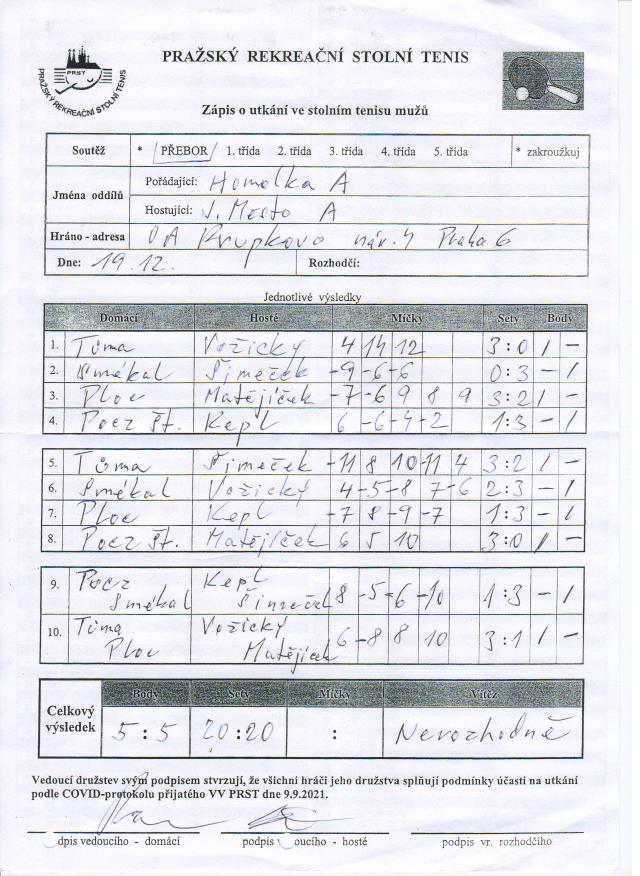 PRAŽSKÝ REKREAČNÍ STOLNÍ TENIS
PRST
PRAŽSKÝ REKREAČNÍ STOLNÍ TENIS
Zápis o utkání ve stolním tenisu mužů
Soutěž * PŘEBOR 1. třída 2. třída 3. třída 4. třída 5. třída * zakroužkuj
Jména oddílů
Pořádající: Homolka A
Hostující: J. Město A
Hráno - adresa DA Krupkovo nám. 4 Praha 6
Dne: 19.12. Rozhodčí:
Jednotlivé výsledky
Domácí Hosté Míčky Sety Body
1. Tůma Vožický 4 14 12 3:0 1 -
2. Smékal Šimeček -9 -6 -6 0:3 - 1
3. Ploc Matějíček -7 -6 9 8 9 3:2 1 -
4. Pocz Št. Kepl 6 -6 -4 -2 1:3 - 1
5. Tůma Šimeček -11 8 10 -11 4 3:2 1 -
6. Smékal Vožický 4 -5 -8 7 -6 2:3 - 1
7. Ploc Kepl -7 8 -9 -7 1:3 - 1
8. Pocz Št. Matějíček 6 5 10 3:0 1 -
9. Pocz Kepl
Smékal Šimeček 8 -5 -6 -10 1:3 - 1
10. Tůma Vožický
Ploc Matějíček 6 -8 8 10 3:1 1 -
Body Sety Míčky Vítěz
Celkový výsledek 5:5 20:20 : Nerozhodně
Vedoucí družstev svým podpisem stvrzují, že všichni hráči jeho družstva splňují podmínky účasti na utkání
podle COVID-protokolu přijatého VV PRST dne 9.9.2021.
dpis vedoucího - domácí podpis v oucího - hosté podpis vr. rozhodčího